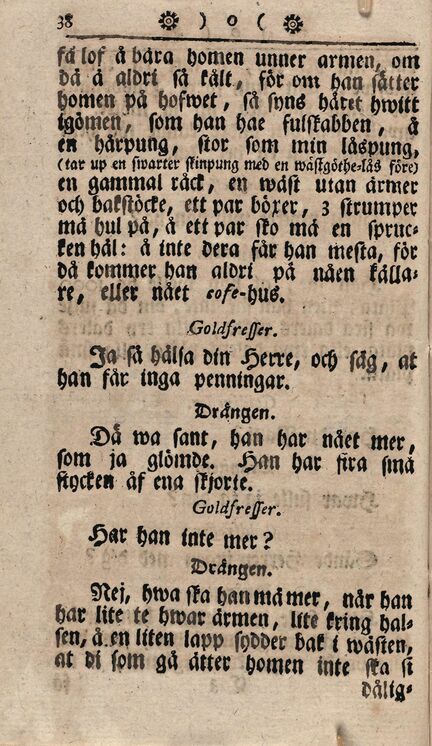 38 ) o (
få lof å bära homen unner armen, om
dä å aldri så kålt, för om han sätter
homen på hofwet, så syns håret hwitt
igömen, som han hae fulskabben, å
en hårpung, stor som min låspung,
(tar up en swarter skinpung med en wästgöthe-lås före)
en gammal råck, en wäst utan ärmer
och bakstöcke, ett par böxer, 3 strumper
må hul på, å ett par sko må en spruc-
ken häl: å inte dera får han mesta, för
då kommer han aldri på nåen källa-
re, eller nået cofe-hus.
Goldfresser.
Ja så hälsa din Herre, och säg, at
han får inga penningar.
Drängen.
Dä wa sant, han har nået mer,
som ja glömde. Han har fira små
stycken åf ena skjorte.
Goldfresser.
Har han inte mer?
Drängen.
Nej, hwa ska han må mer, när han
har lite te hwar ärmen, lite kring hal-
sen, å en liten lapp sydder bak i wästen,
at di som gå ätter homen inte ska si
dålig-